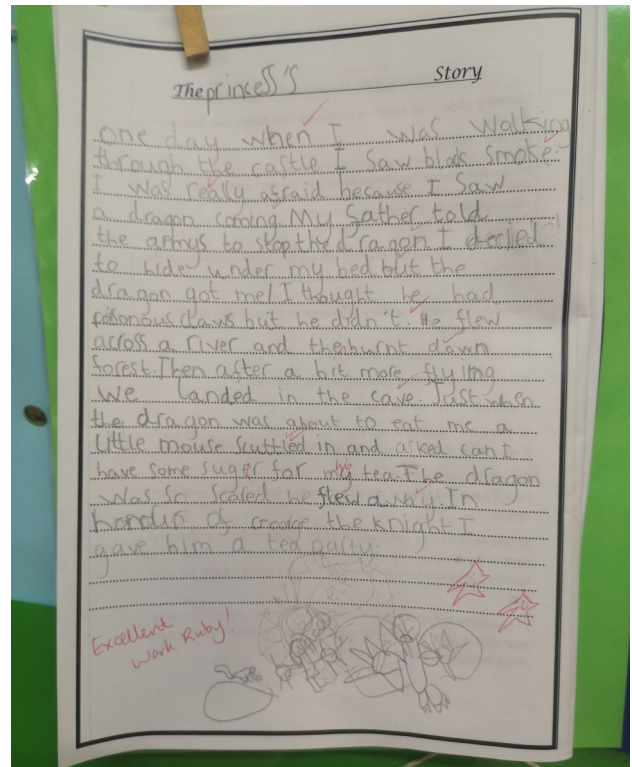 The princess's Story
one day when I was walking
through the castle I saw black smoke.
I was really afraid because I saw
a dragon coming. My father told
the armys to stop the dragon. I decided
to hide under my bed but the
dragon got me! I thought he had
poisonous claws but he didn't. He flew
across a river and then burnt down
forest. Then after a bit more flying
we landed in the cave. Just when
the dragon was about to eat me a
little mouse scuttled in and asked can I
have some suger for my tea. The dragon
was so scared he flew away. In
of the knight I
gave him a tea party.
Excellent
work Ruby!